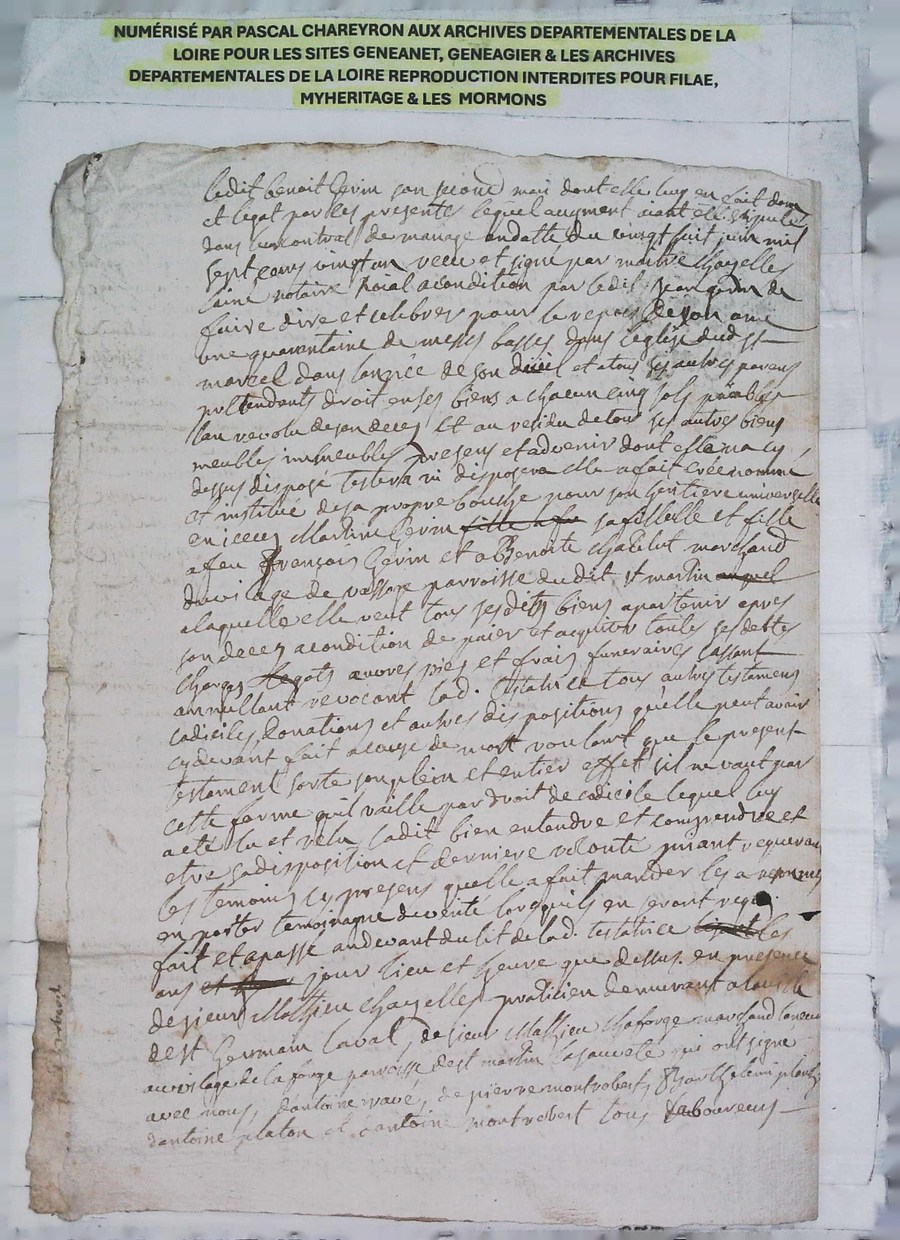 NUMÉRISÉ PAR PASCAL CHAREYRON AUX ARCHIVES DEPARTEMENTALES DE LA
LOIRE POUR LES SITES GENEANET, GENEAGIER & LES ARCHIVES
DEPARTEMENTALES DE LA LOIRE REPRODUCTION INTERDITES POUR FILAE,
MYHERITAGE & LES MORMONS
ledit benoit Gerin son second mari dont elle luy en fait don
et légat par les presentes lequel augment aiant été stipulé
dans leur contrat de mariage en datte du vingt huit juin mil
sept cens vingt un receu et signé par maitre Chazelles
laine notaire Roial a condition par ledit gerin de
faire dire et celebrer pour le repos de son ame
une quarentaine de messes basses dans l'eglise dud st
marcel dans lannée de son deces et a tous ses autres parens
pretendants droit en ses biens a chacun cinq sols païables
lan revolu de son deces Et au residu de tous ses autres biens
meubles immeubles presens et advenir dont elle na cy
dessus disposé testera ni disposera elle a fait créé nommé
et institué de sa propre bouche pour son heritiere universelle
en iceux Martine Gerin sa fillelle et fille
a feu françois Gerin et a Benoite Chatelut marchand
du vilage de parroisse dudit st martin
a laquelle elle veut tous sesdits biens apartenir apres
son deces a condition de paier et acquitter toutes ses dettes
charges legats œuvres pies et frais funeraires Cassant
annullant revocant lad. testatrice tous autres testamens
codiciles, donations et autres dispositions qu'elle peut avoir
cy devant fait a cause de mort voulant que le present
testament sorte son plein et entier effet s'il ne vaut par
cette forme qu'il vaille par droit de codicile lequel luy
a eté lu et relu, ladit bien entendre et comprendre et
etre sa disposition et derniere volonté priant requerant
les temoins cy presens quelle a fait mander
en porter temoignage de verité lorsquils en seront requis
fait et a passé au devant du lit de lad. testatrice les
ans jour lieu et heure que dessus. en presence
de sieur Mathieu Chazelles praticien demeurant a la ville
de st Germain Laval, de sieur Mathieu Chaforge marchand
au vilage de la forge paroisse de st martin la sauveté qui ont signé
avec nous, d'antoine de pierre montrobert, Barthelemi
d'antoine platon et d'antoine montrobert tous laboureurs